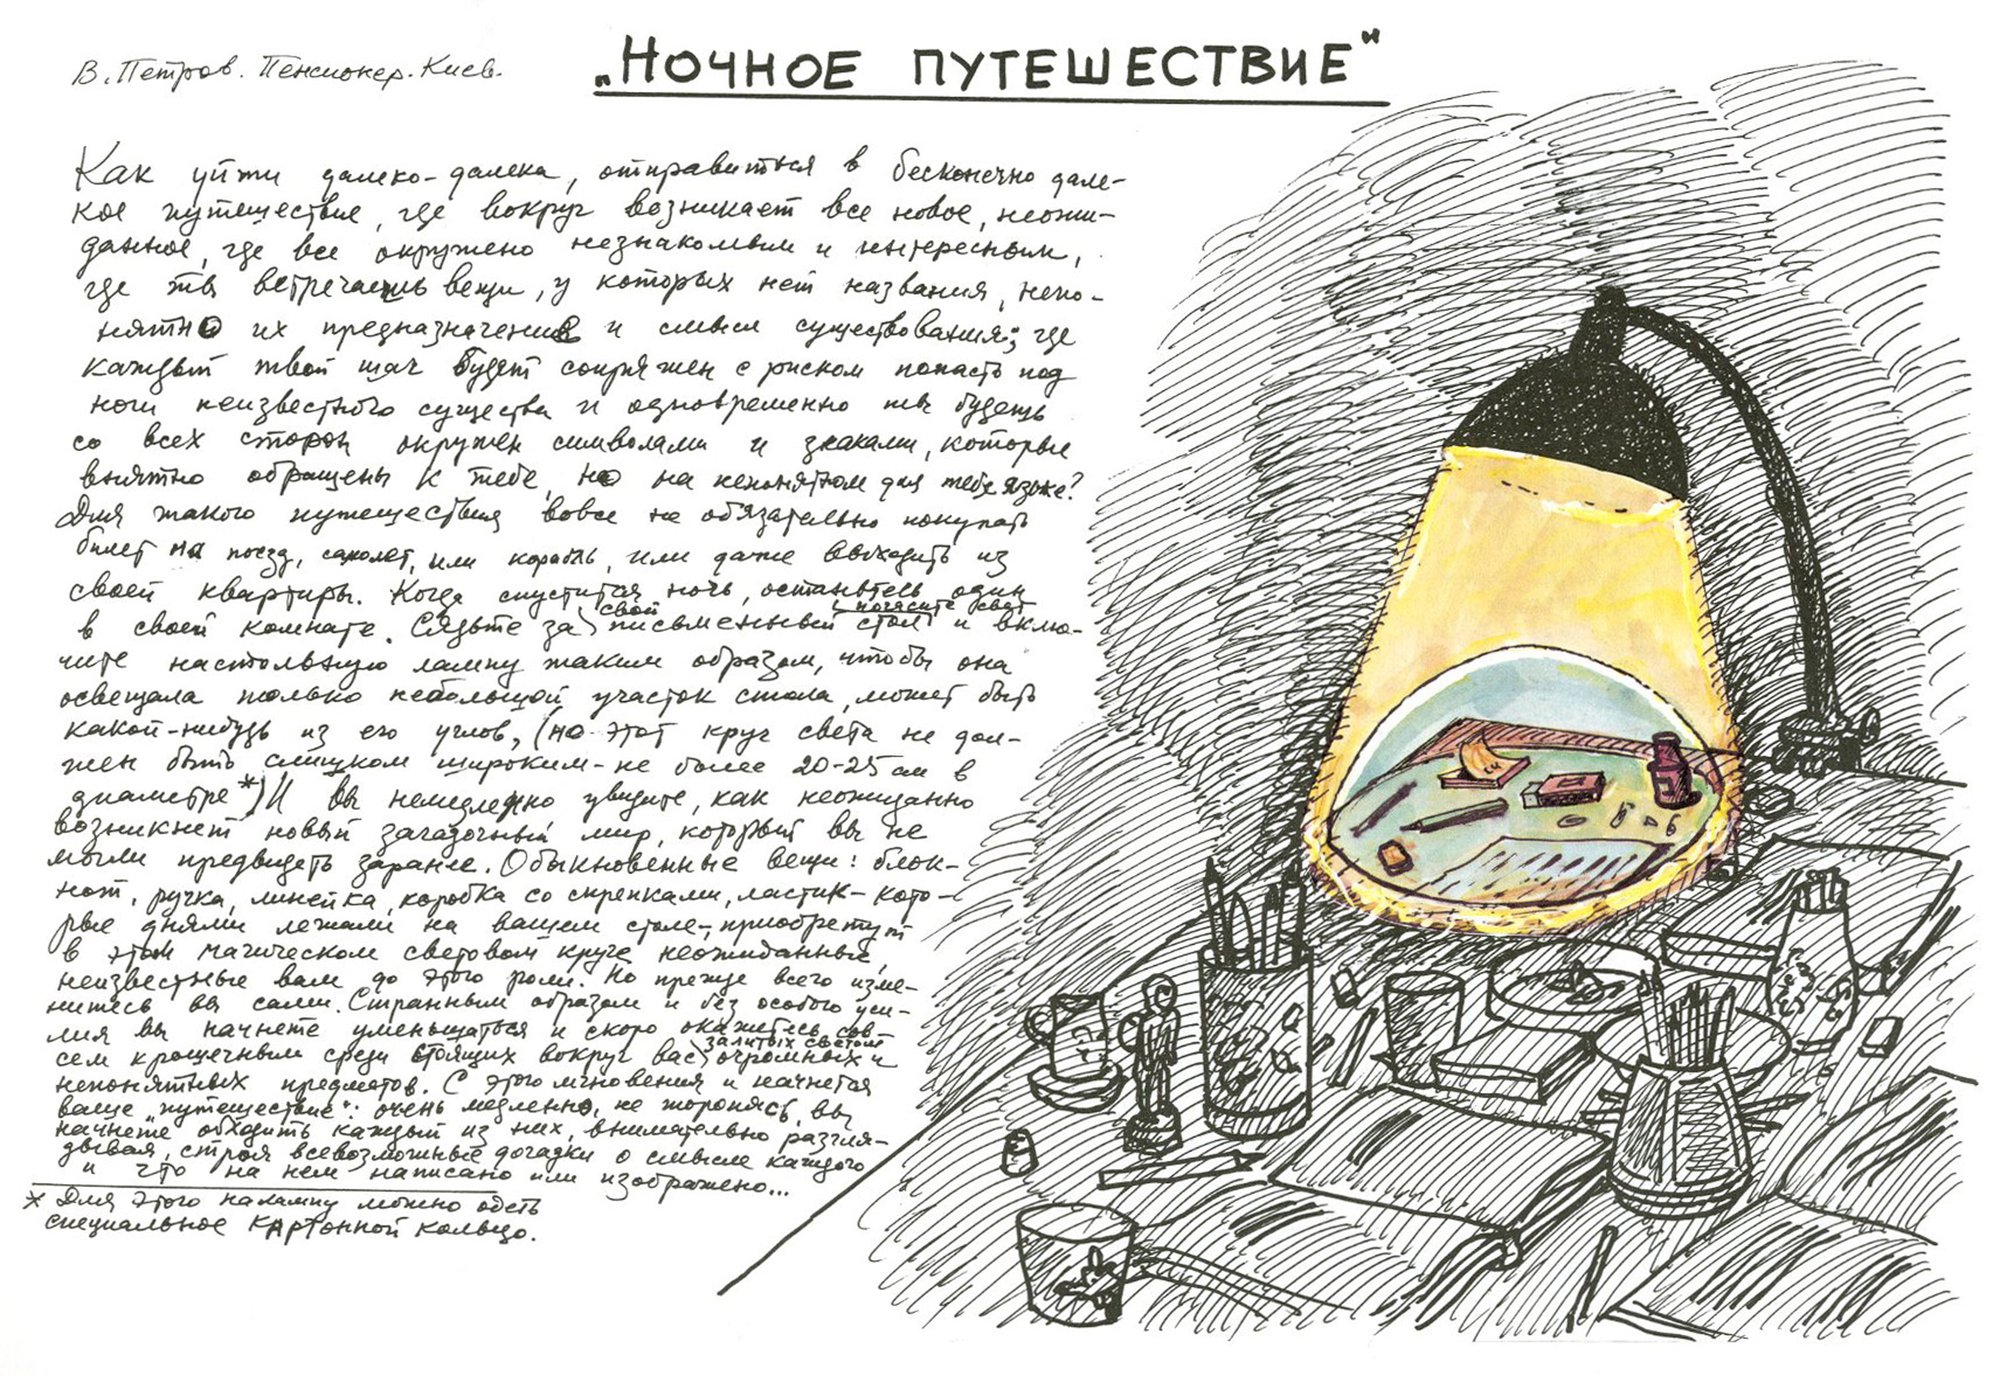 В. Петров. Пенсионер. Киев.
„НОЧНОЕ ПУТЕШЕСТВИЕ“
Как уйти далеко-далека, отправиться в бесконечно дале-
кое путешествие, где вокруг возникает все новое, неожи-
данное, где все окружено незнакомым и интересным,
где ты встречаешь вещи, у которых нет названия, непо-
нятно их предназначение и смысл существования; где
каждый твой шаг будет сопряжен с риском попасть под
ноги неизвестного существа и одновременно ты будешь
со всех сторон окружен символами и знаками, которые
внятно обращены к тебе, но на непонятном для тебя языке?
Для такого путешествия вовсе не обязательно покупать
билет на поезд, самолет, или корабль, или даже выходить из
своей квартиры. Когда спустится ночь, останьтесь один
в своей комнате. Сядьте за свой письменный стол, погасите свет и вклю-
чите настольную лампу таким образом, чтобы она
освещала только небольшой участок стола, может быть
какой-нибудь из его углов, (но этот круг света не дол-
жен быть слишком широким - не более 20-25 см в
диаметре*) И вы немедленно увидите, как неожиданно
возникнет новый загадочный мир, который вы не
могли предвидеть заранее. Обыкновенные вещи: блок-
нот, ручка, линейка, коробка со скрепками, ластик - кото-
рые днями лежали на вашем столе, приобретут
в этом магическом световом круге неожиданные,
неизвестные вам до этого роли. Но прежде всего изме-
нитесь вы сами. Странным образом и без особого уси-
лия вы начнете уменьшаться и скоро окажетесь сов-
сем крошечным среди стоящих вокруг вас залитых светом огромных и
непонятных предметов. С этого мгновения и начнется
ваше „путешествие“: очень медленно, не торопясь, вы
начнете обходить каждый из них, внимательно разгля-
дывая, строя всевозможные догадки о смысле каждого
и что на нем написано или изображено...
* Для этого на лампу можно одеть
специальное картонной кольцо.